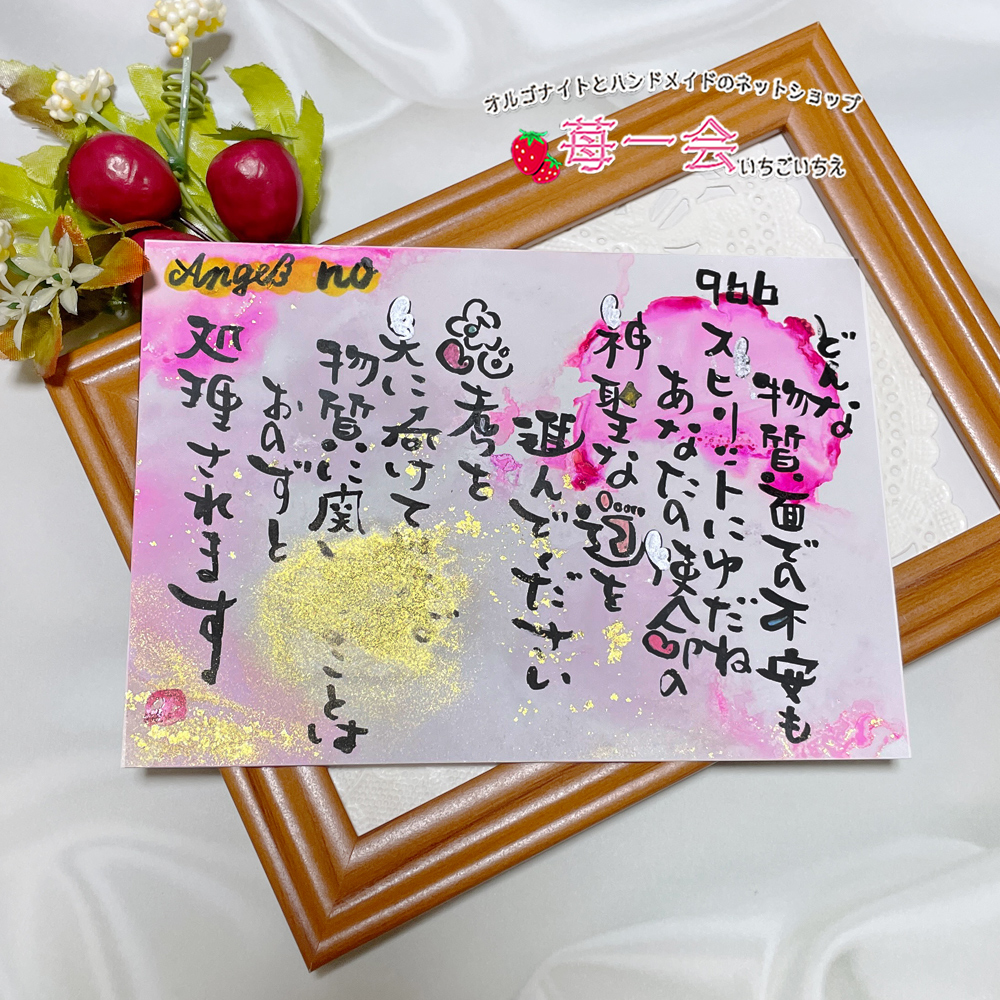 オルゴナイトとハンドメイドのネットショップ
苺一会
いちごいちえ
Angel no
966
どんな
物質面での不安も
スピリットにゆだね
あなたの使命の
神聖な道を
進んでください
思考を
天に向けて
物質に関 ことは
おのずと
処理されます